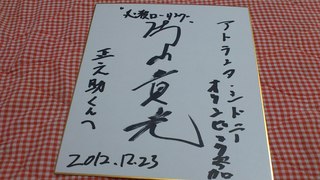 アトランタ・シドニー
オリンピック参加
"必殺ローリング"
片山貴光
正之助くんへ
2012.12.23